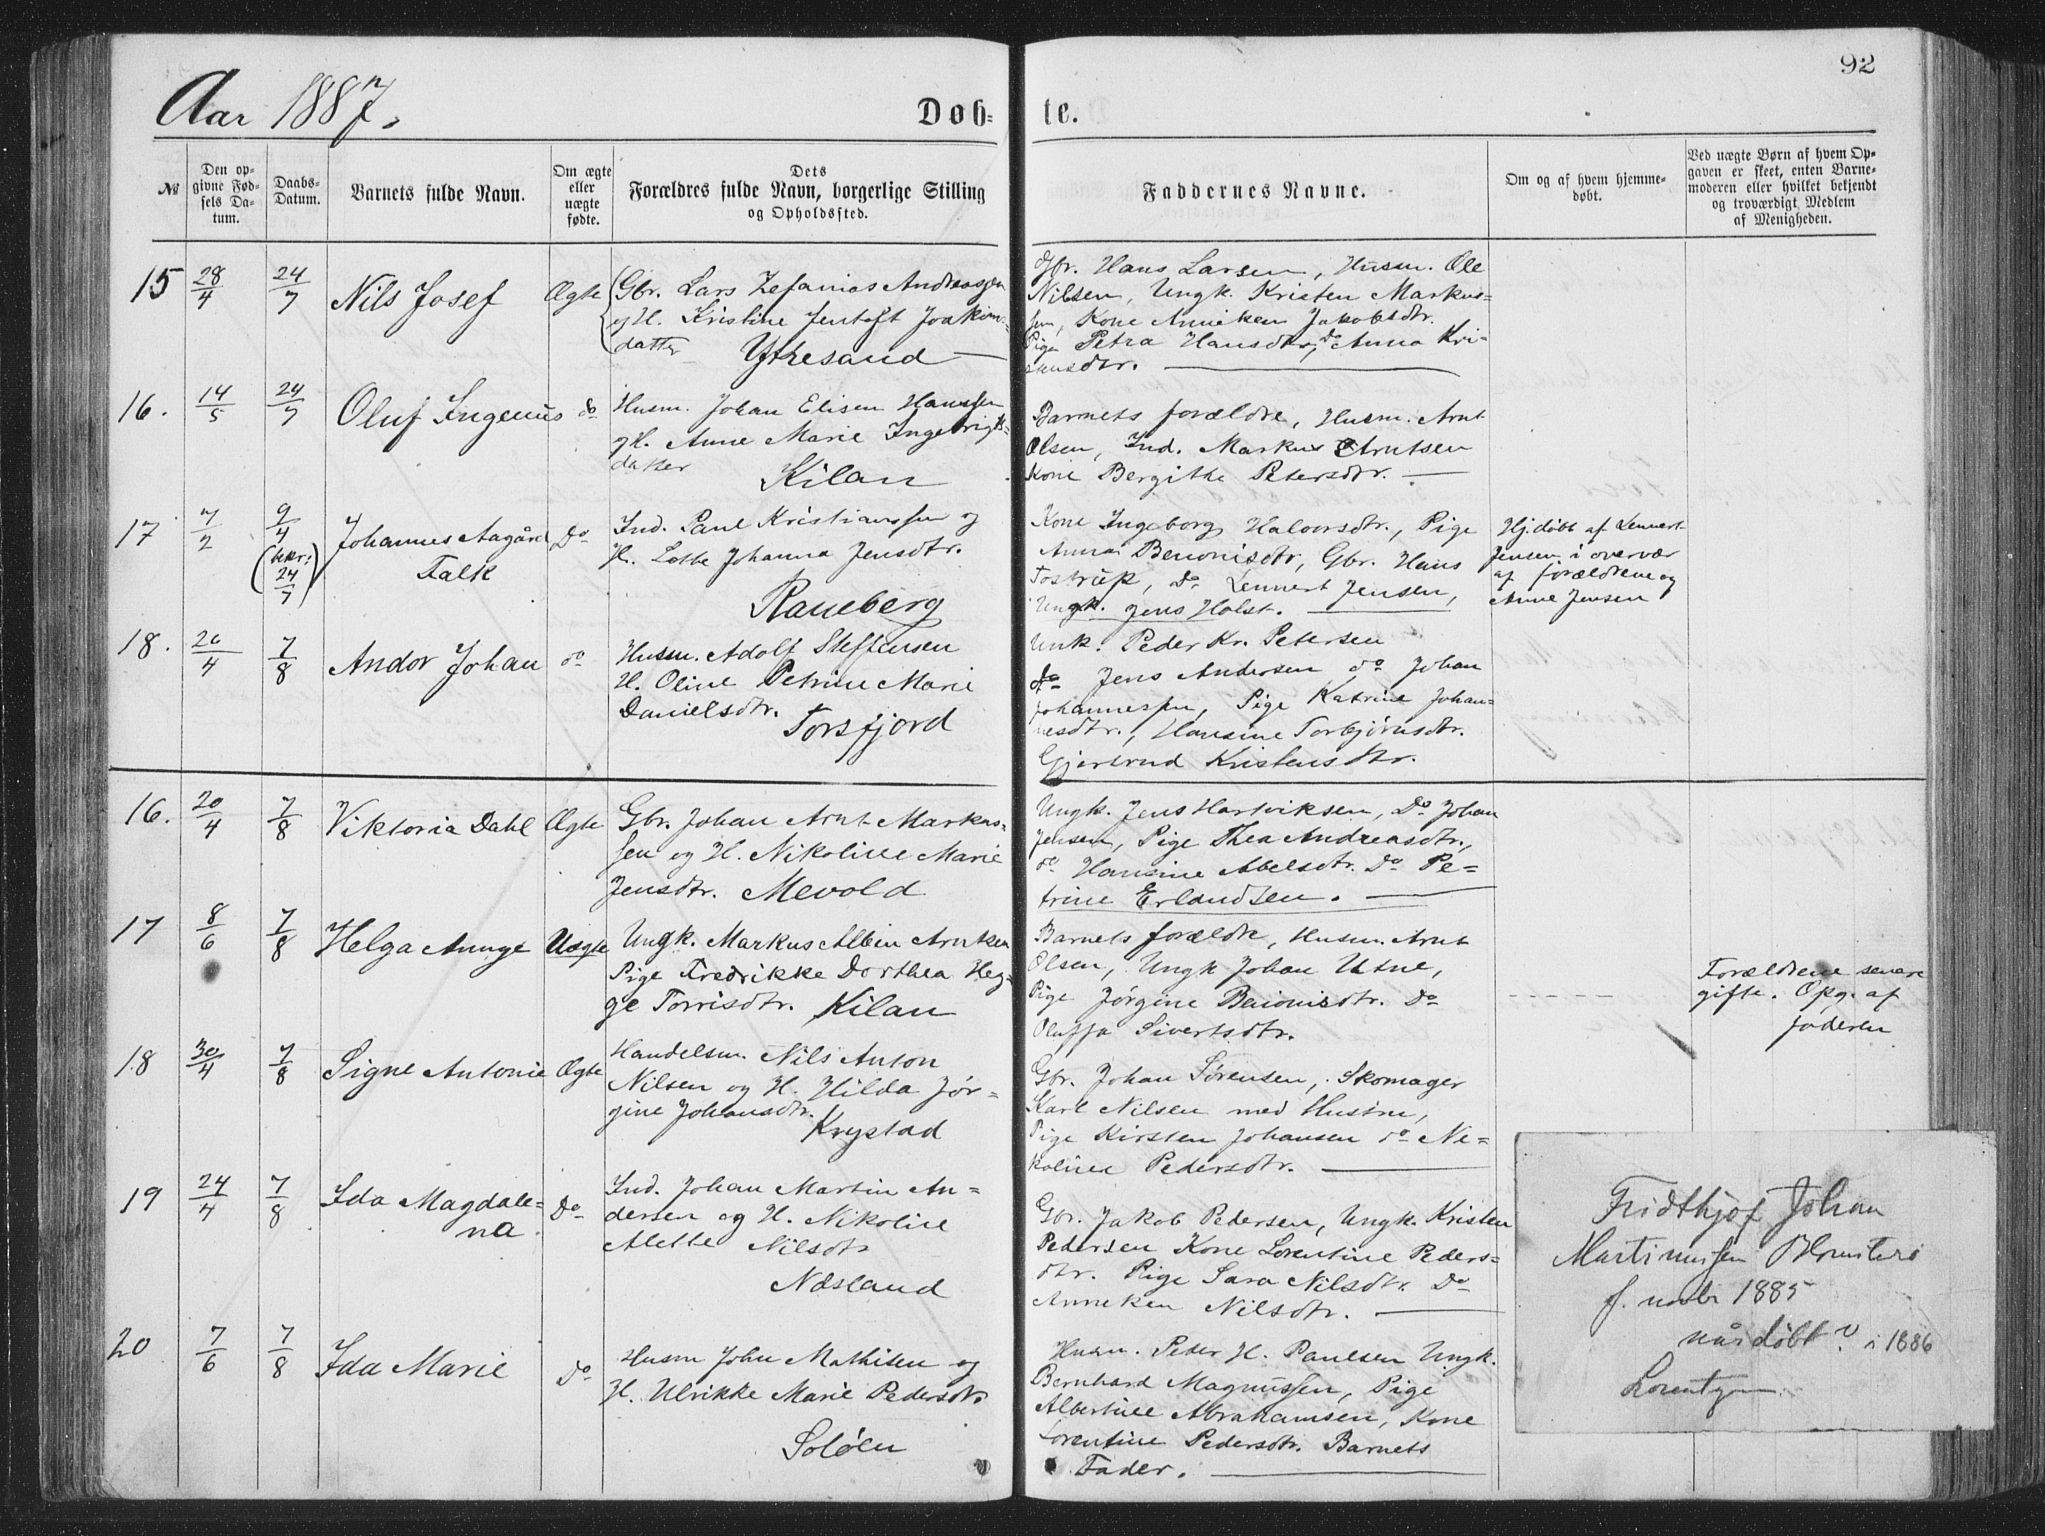 92
Aar 1887.
Døb-
te.
№
Den op-
givne Fød-
sels Da-
tum.
Daabs-
Datum.
Barnets fulde Navn.
Om ægte
eller
uægte
fødte.
Dets
Forældres fulde Navn, borgerlige Stilling
og Opholdssted.
Faddernes Navne.
Om og af hvem hjemme-
døbt.
Ved uægte Børn af hvem Op-
gaven er skeet, enten Barne-
moderen eller hvilket bekjendt
og troværdigt Medlem
af Menigheden.
15 28/4 24/7 Nils Josef Ægte
Gbr. Lars Zefanias Andreassen
og H. Kristine Jentoft Joakims=
datter Ytresand
Gbr. Hans Larsen, Husm. Ole
Nilsen, Ungk. Kristen Markus=
sen, Kone Anneken Jakobsdtr.
Pige Petra Hansdtr, do Anna Kri-
stensdtr.
16. 14/5 24/7 Oluf Ingenius do
Husm. Johan Elisen Hanssen
og H. Anne Marie Ingebrigts=
datter
Kilan
Barnets forældre, Husm. Arnt
Olsen, Ind. Markus Arntsen
Kone Bergithe Petersdtr.
17 7/2 9/4 (bekr: 24/7) Johannes Aagård Do
Falk
Ind. Paul Kristianssen og
H. Lotte Johanna Jensdtr.
Raneberg
Kone Ingeborg Halvorsdtr., Pige
Anna Benonisdtr, Gbr. Hans
Tostrup, Do Lennert Jensen,
Ungk. Jens Holst.
Hj.døbt af Lennert
Jensen i overvær
af forældrene og
Anne Jensen
18. 26/4 7/8 Andor Johan do
Husm. Adolf Steffensen
H. Oline Petrine Marie
Danielsdtr.
Torsfjord
Unk. Peder Kr. Petersen
do Jens Andersen do Johan
Johannessen, Pige Katrine Johan=
nesdtr., Hansine Torbjørnsdtr.
Gjertrud Kristensdtr.
16. 20/4 7/8 Viktoria Dahl Ægte
Gbr. Johan Arnt Markus-
sen og H. Nikoline Marie
Jensdtr. Mevold
Ungk. Jens Hartviksen, Do Johan
Jensen, Pige Thea Andreasdtr.,
do Hansine Abelsdtr. Do Pe=
trine Erlandsen.
17 8/6 7/8 Helga Aunge Uægte
Ungk. Markus Albin Arntsen
Pige Fredrikke Dorthea Heg-
ge Torrisdtr. Kilan
Barnets forældre, Husm. Arnt
Olsen, Ungk Johan Utne,
Pige Jørgine Benonisdtr. Do
Oluffa Sivertsdtr.
Forældrene senere
gifte. Opg. af
faderen
18 30/4 7/8 Signe Antonie Ægte
Handelsm. Nils Anton
Nilsen og H. Hilda Jør-
gine Johansdtr.
Krystad
Gbr. Johan Sørensen, Skomager
Karl Nilsen med Hustru,
Pige Kirsten Johansen do Ne=
koline Pedersdtr.
19 24/4 7/8 Ida Magdale=
na Do
Ind. Johan Martin An=
dersen og H. Nikoline
Alette Nilsdtr
Næsland
Gbr. Jakob Pedersen, Ungk. Kristen
Pedersen Kone Lorentine Peders=
dtr. Pige Sara Nilsdtr. Do
Anneken Nilsdtr.
20 7/6 7/8 Ida Marie Do
Husm John Mathisen og
H. Ulrikke Marie Pedersdtr
Soløen
Husm. Peder H. Paulsen Ungk.
Bernhard Magnussen, Pige
Albertine Abrahamsen, Kone
Lorentine Pedersdtr. Barnets
Fader.
Fridthjof Johan
Martinussen
f. novbr 1885
når døbt? i 1886
Lorentzen